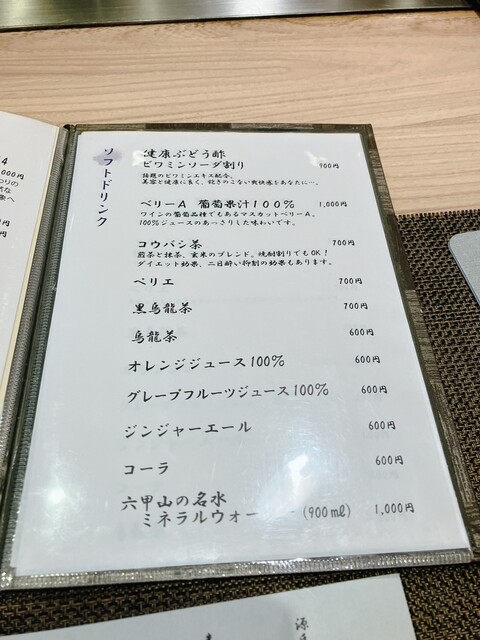 ソフトドリンク
健康ぶどう酢
ビワミンソーダ割り 900円
話題のビワミンエキス配合。
美容と健康に良く、飽きのこない爽快感をあなたに…。
ベリーA 葡萄果汁100% 1,000円
ワインの葡萄品種でもあるマスカットベリーA。
100%ジュースのあっさりした味わいです。
コウバシ茶 700円
煎茶と抹茶、玄米のブレンド。焼酎割りでもOK!
ダイエット効果、二日酔い抑制の効果もあります。
ペリエ 700円
黒烏龍茶 700円
烏龍茶 600円
オレンジジュース100% 600円
グレープフルーツジュース100% 600円
ジンジャーエール 600円
コーラ 600円
六甲山の名水
ミネラルウォー (900ml) 1,000円